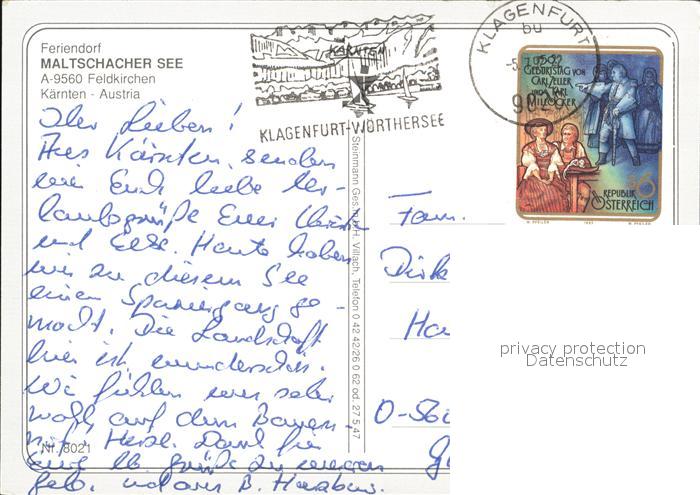 Feriendorf
MALTSCHACHER SEE
A-9560 Feldkirchen
Kärnten - Austria
KÄRNTEN
KLAGENFURT-WÖRTHERSEE
KLAGENFURT
bu
GEBURTSTAG VON
CARL ZELLER
UND KARL
MILLÖCKER
S6
REPUBLIK
ÖSTERREICH
Ihr Lieben!
Aus Kärnten senden
wir Euch liebe Ur-
laubsgrüße Eure
und Elke. Heute haben
wir zu diesem See
einen Spaziergang ge-
macht. Die Landschaft
hier ist wunderschön.
Wir fühlen uns sehr
wohl auf dem Bauern-
hof. Herzl. Dank für
eure lb. Grüße zu meinem
geb. und von B.
Nr. 8021
Steinmann Ges.m.b.H. Villach, Telefon 0 42 42/26 0 62 od. 27 5 47
Fam.
Dirk
Ha
O-56
privacy protection
Datenschutz